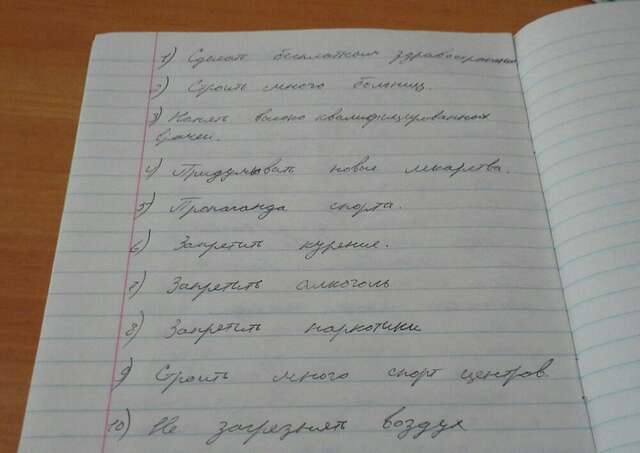 1) Сделать бесплатным здравоохранение
2) Строить много больниц.
3) Нанять високо квалифицированных
врачей.
4) Придумывать новые лекарства.
5) Пропаганда спорта.
6) Запретить курение.
7) Запретить алкоголь
8) Запретить наркотики
9) Строить много спорт центров
10) Не загрезнять воздух